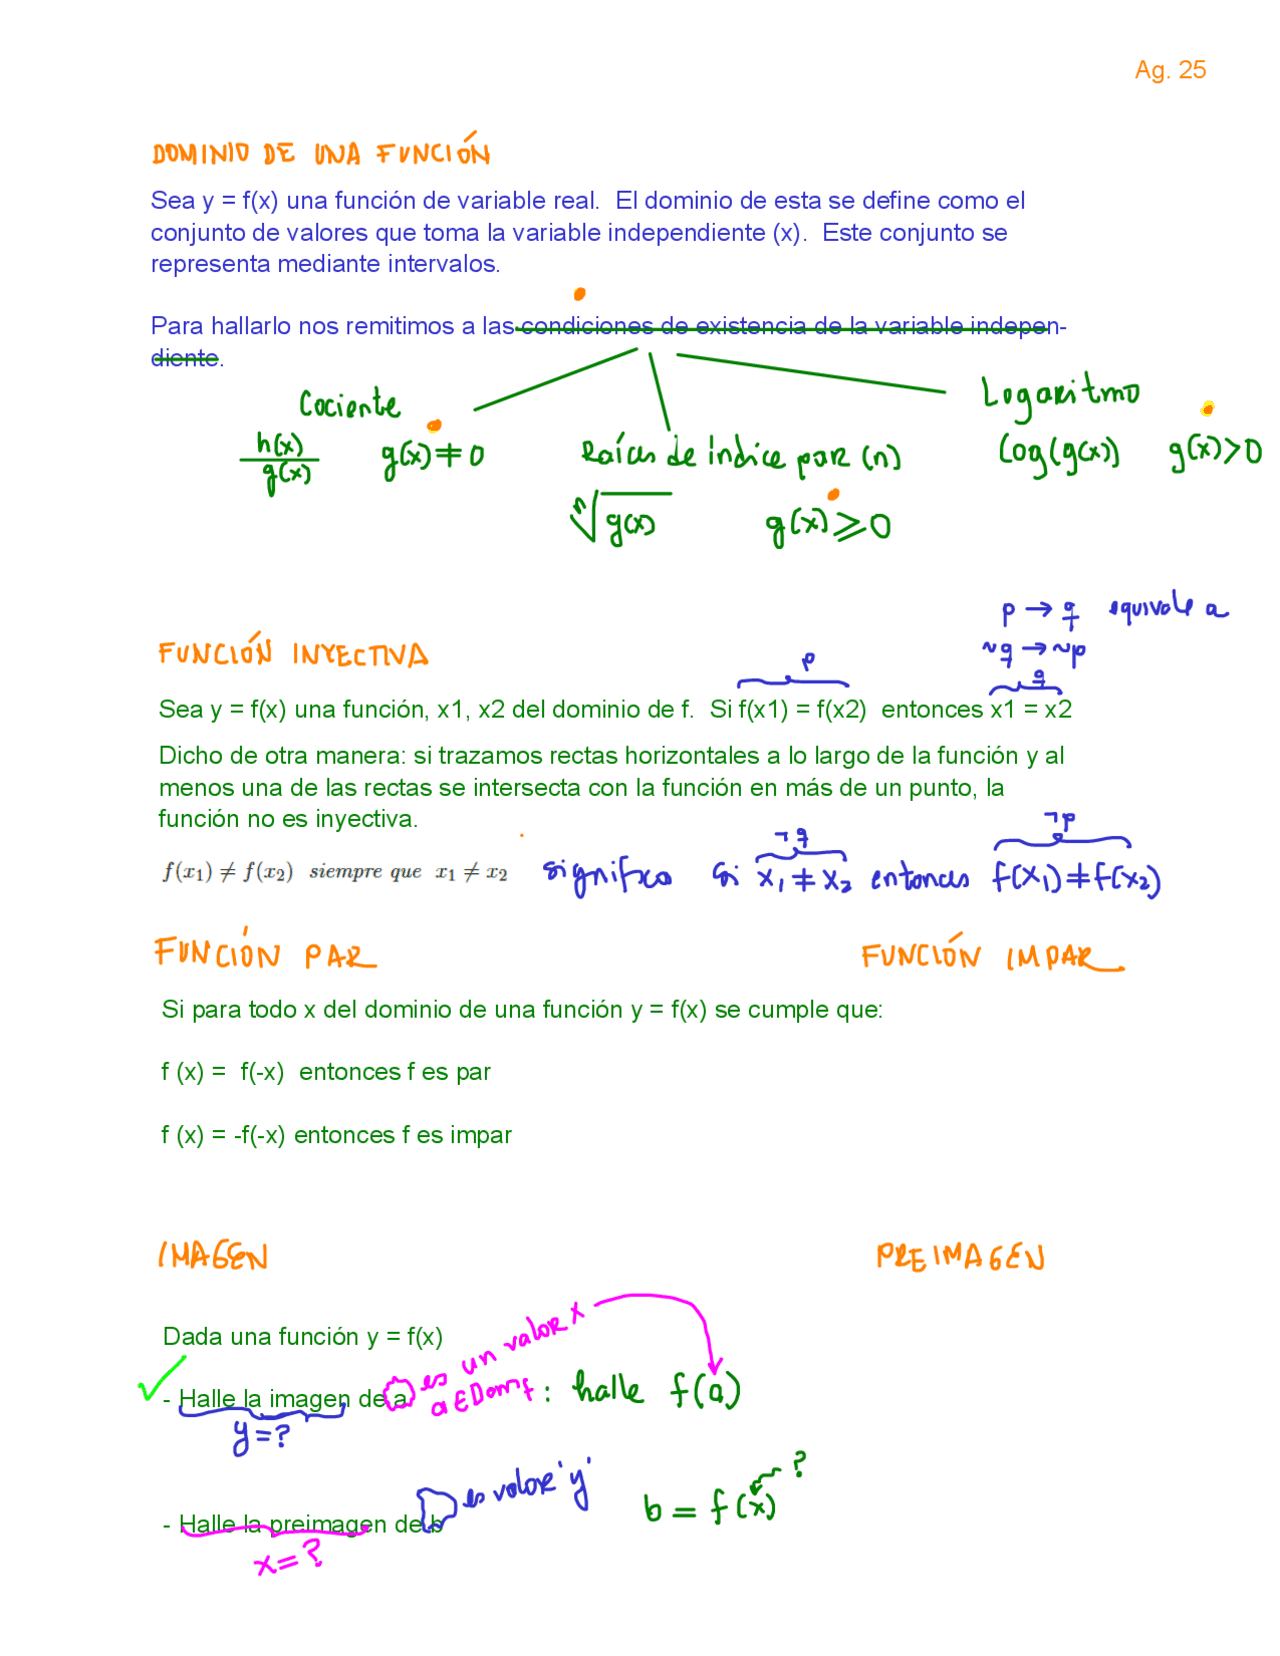 Ag. 25
DOMINIO DE UNA FUNCIÓN
Sea y = f(x) una función de variable real.  El dominio de esta se define como el
conjunto de valores que toma la variable independiente (x).  Este conjunto se
representa mediante intervalos.
Para hallarlo nos remitimos a las condiciones de existencia de la variable indepen-
diente.
Cociente
h(x)/g(x)   g(x) ≠ 0
Raíces de índice par (n)
ⁿ√g(x)   g(x) ≥ 0
Logaritmo
Log(g(x))   g(x) > 0
p → q  equivale a
~q → ~p
FUNCIÓN INYECTIVA
p   q
Sea y = f(x) una función, x1, x2 del dominio de f.  Si f(x1) = f(x2)  entonces x1 = x2
Dicho de otra manera: si trazamos rectas horizontales a lo largo de la función y al
menos una de las rectas se intersecta con la función en más de un punto, la
función no es inyectiva.
¬q   ¬p
f(x₁) ≠ f(x₂)  siempre que  x₁ ≠ x₂  significa  Si x₁ ≠ x₂ entonces f(x₁) ≠ f(x₂)
FUNCIÓN PAR   FUNCIÓN IMPAR
Si para todo x del dominio de una función y = f(x) se cumple que:
f (x) =  f(-x)  entonces f es par
f (x) = -f(-x) entonces f es impar
IMAGEN   PREIMAGEN
Dada una función y = f(x)
es un valor x
- Halle la imagen de a  a ∈ Domf : halle f(a)
y = ?
es valor 'y'   b = f(x)  ?
- Halle la preimagen de b
x = ?